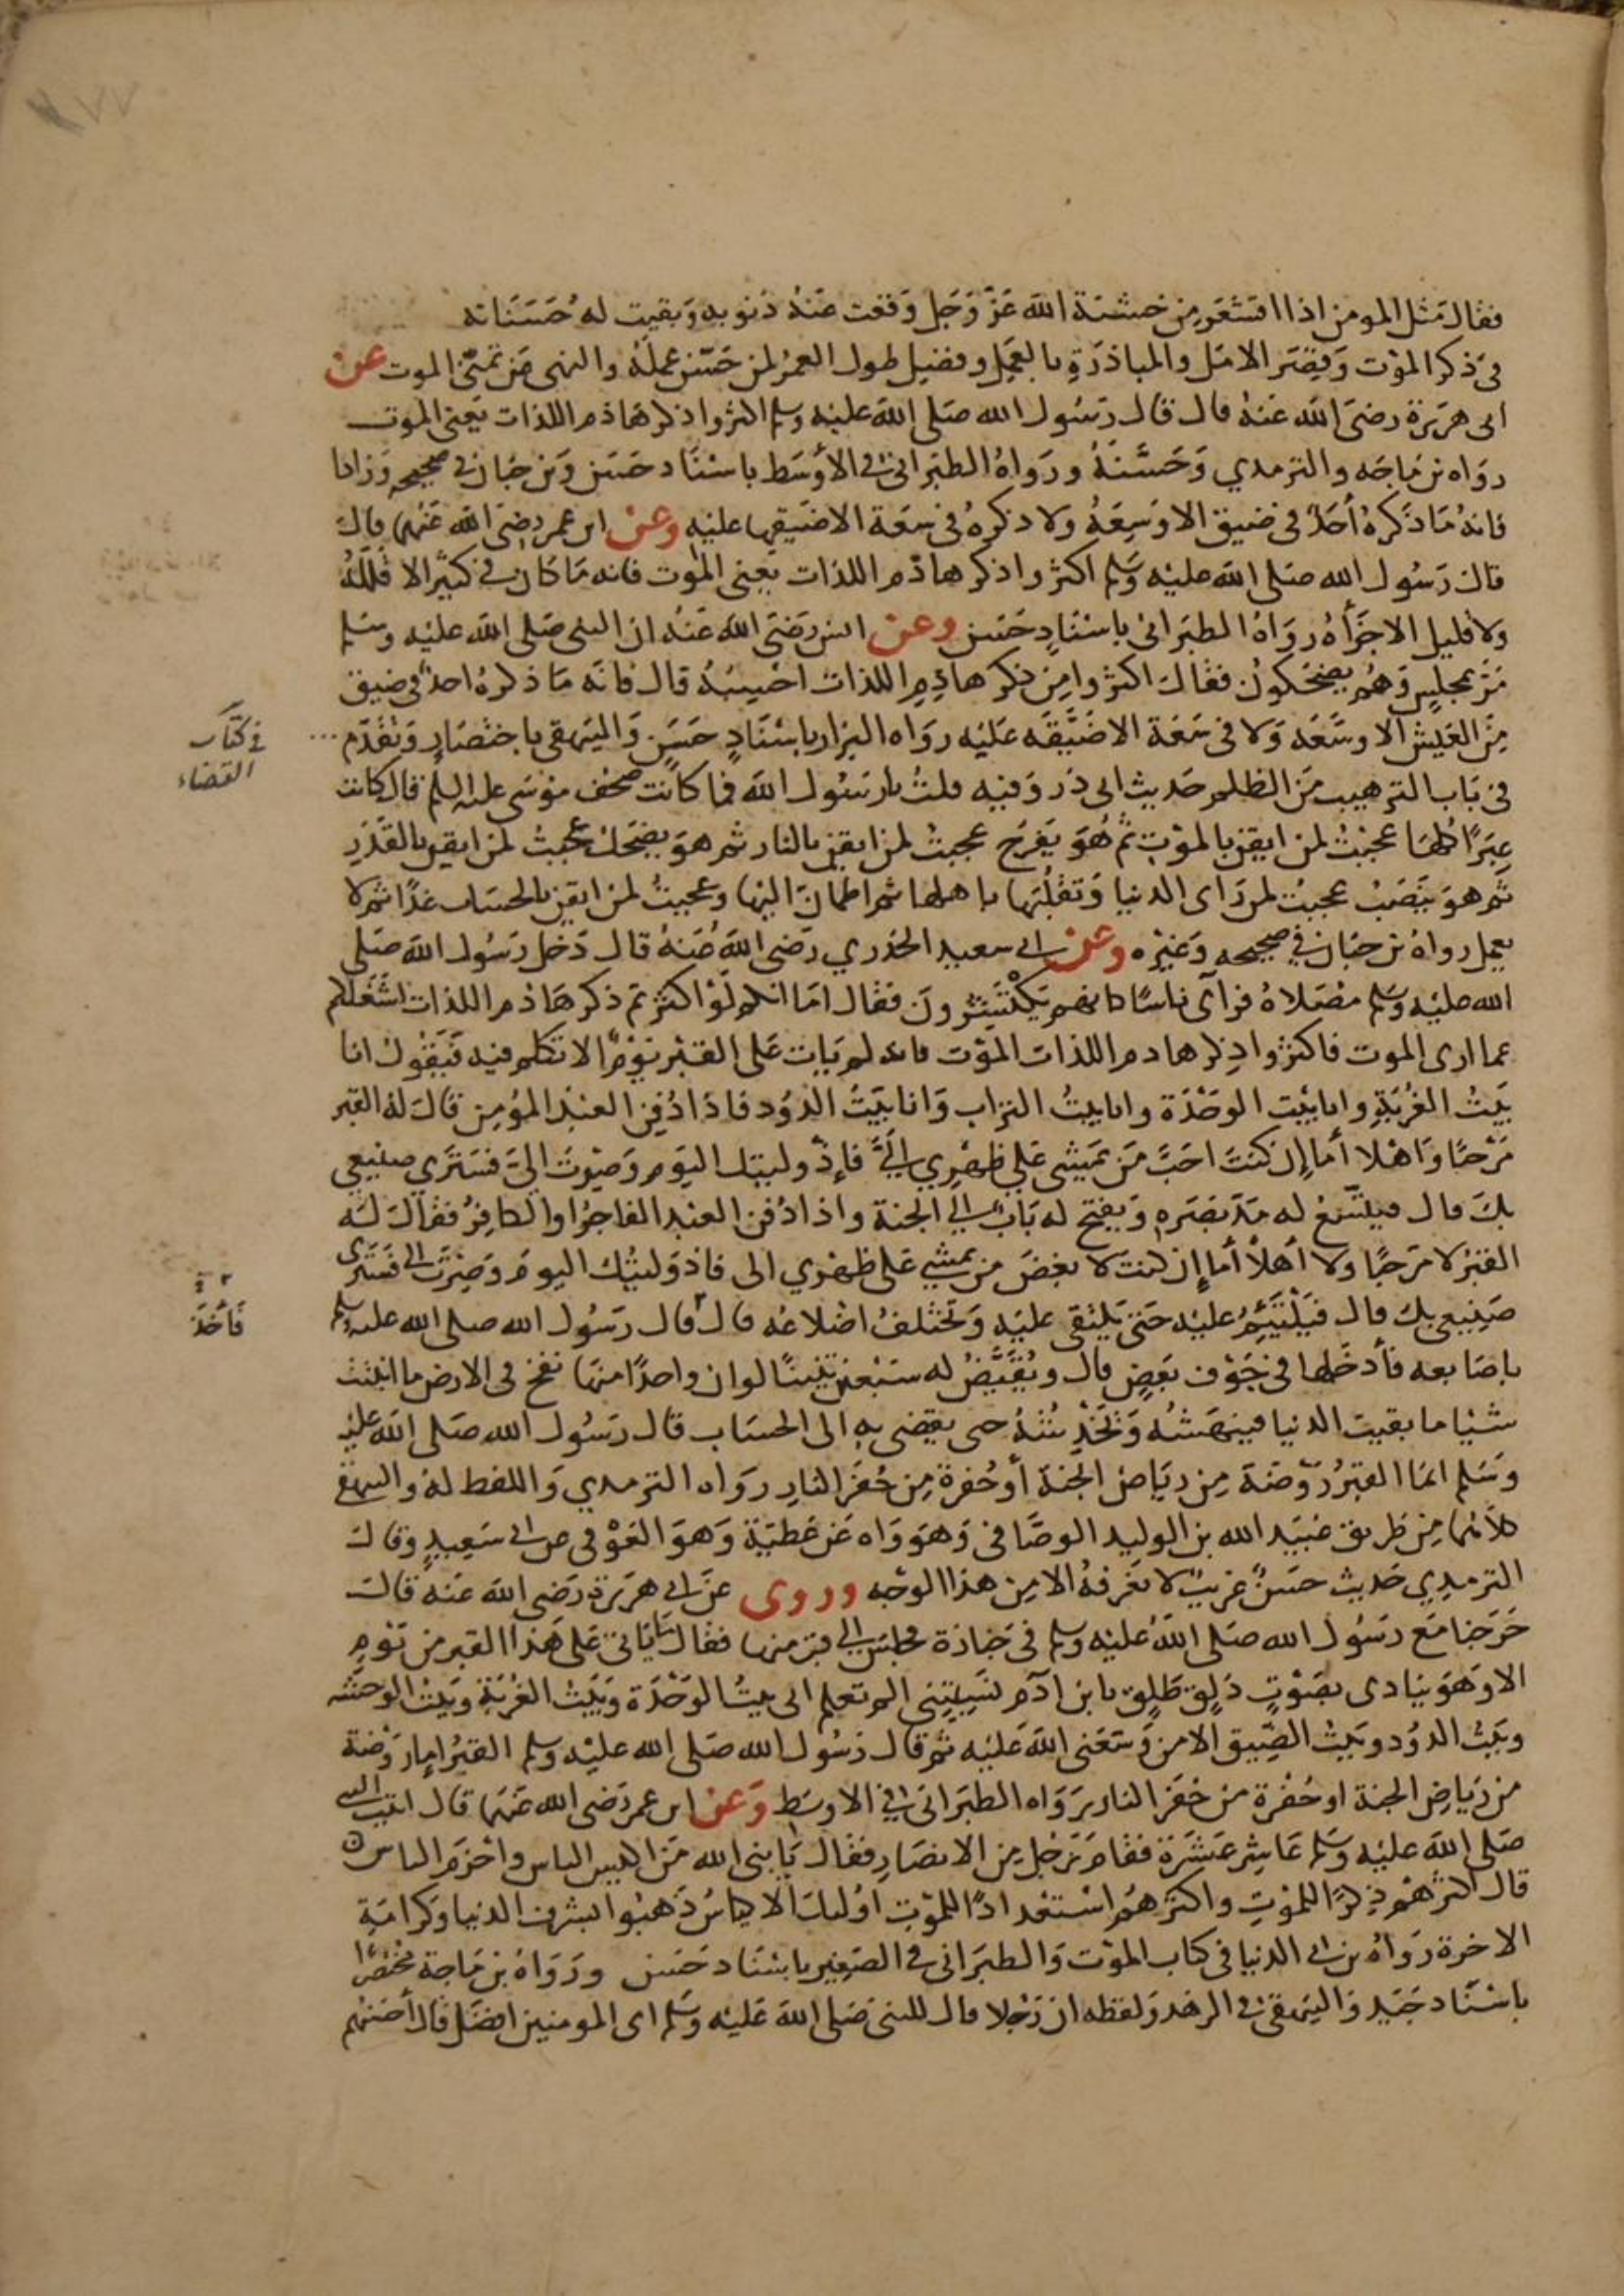 فقال مثل المومن اذا اقشعر من خشية الله عز وجل وقعت عنه ذنوبه وبقيت له حسناته
في ذكر الموت وقصر الامل والمبادرة بالعمل وفضل طول العمر لمن حسن عمله والنهى عن تمنى الموت عن
ابى هريرة رضى الله عنه قال قال رسول الله صلى الله عليه وسلم اكثروا ذكر هاذم اللذات يعنى الموت
رواه بن ماجه والترمدي وحسنه ورواه الطبرانى فى الأوسط باسناد حسن وبن حبان فى صحيحه وزادا
فانه ما ذكره أحد فى ضيق الا وسعه ولا ذكره فى سعة الا ضيقها عليه وعن ابن عمر رضى الله عنهما قال
قال رسول الله صلى الله عليه وسلم اكثروا ذكر هاذم اللذات يعنى الموت فانه ما كان فى كثير الا قلله
ولا قليل الا جزأه رواه الطبرانى باسناد حسن وعن انس رضى الله عنه ان النبى صلى الله عليه وسلم
مر بمجلس وهم يضحكون فقال اكثروا من ذكر هاذم اللذات احسبه قال فانه ما ذكره احد فى ضيق
من العيش الا وسعه ولا فى سعة الا ضيقه عليه رواه البزار باسناد حسن والبيهقى باختصار وتقدم ...
فى كتاب
القضاء
فى باب الترهيب من الظلم حديث ابى ذر وفيه قلت يا رسول الله فما كانت صحف موسى عليه السلم قال كانت
عبرا كلها عجبت لمن ايقن بالموت ثم هو يفرح عجبت لمن ايقن بالنار ثم هو يضحك عجبت لمن ايقن بالقدر
ثم هو ينصب عجبت لمن راى الدنيا وتقلبها باهلها ثم اطمان اليها وعجبت لمن ايقن بالحساب غدا ثم لا
يعمل رواه بن حبان فى صحيحه وغيره وعن ابى سعيد الخدري رضى الله عنه قال دخل رسول الله صلى
الله عليه وسلم مصلاه فرآى ناسا كانهم يكتشرون فقال اما انكم لو اكثرتم ذكر هاذم اللذات اشغلكم
عما ارى الموت فاكثروا ذكر هادم اللذات الموت فانه لم يات على القبر يوم الا تكلم فيه فيقول انا
بيت الغربة وانا بيت الوحدة وانا بيت التراب وانا بيت الدود فاذا دفن العبد المؤمن قال له القبر
مرحبا واهلا أما إن كنت احب من يمشى على ظهري الي فإذ وليتك اليوم وصرت الي فسترى صنيعي
بك قال فيتسع له مد بصره ويفتح له باب الى الجنة واذا دفن العبد الفاجر او الكافر فقال له
القبر لا مرحبا ولا أهلا أما إن كنت لا بغض من يمشي على ظهري الى فاذ وليتك اليوم وصرت الى فسترى
صنيعى بك قال فيلتئم عليه حتى يلتقى عليه وتختلف اضلاعه قال قال رسول الله صلى الله عليه وسلم
فأخذ
باصابعه فأدخلها فى جوف بعض قال ويقيض له سبعين تنينا لو ان واحدا منها نفخ فى الارض ما انبتت
شيا ما بقيت الدنيا فينهشنه وتخدشنه حتى يفضى به الى الحساب قال رسول الله صلى الله عليه
وسلم انما القبر روضة من رياض الجنة أو حفرة من حفر النار رواه الترمدي واللفظ له والبيهقى
كلاهما من طريق عبيد الله بن الوليد الوصافى وهو واه عن عطية وهو العوفى عن ابى سعيد وقال
الترمدي حديث حسن غريب لا نعرفه الا من هذا الوجه وروى عن ابى هريرة رضى الله عنه قال
خرجنا مع رسول الله صلى الله عليه وسلم فى جنازة فجلس الى قبر منها فقال ما ياتى على هذا القبر من يوم
الا وهو ينادى بصوت ذلق طلق يا بن آدم نسيتنى الم تعلم انى بيت الوحدة وبيت الغربة وبيت الوحشه
وبيت الدود وبيت الضيق الا من وسعنى الله عليه ثم قال رسول الله صلى الله عليه وسلم القبر إما روضة
من رياض الجنة او حفرة من حفر النار رواه الطبرانى فى الاوسط وعن ابن عمر رضى الله عنهما قال اتيت النبى
صلى الله عليه وسلم عاشر عشرة فقام رجل من الانصار فقال يا نبى الله من اكيس الناس واحزم الناس
قال اكثرهم ذكرا للموت واكثرهم استعدادا للموت اوليك الاكياس ذهبوا بشرف الدنيا وكرامة
الاخرة رواه بن ابى الدنيا فى كتاب الموت والطبرانى فى الصغير باسناد حسن ورواه بن ماجة مختصرا
باسناد جيد والبيهقى فى الزهد ولفظه ان رجلا قال للنبى صلى الله عليه وسلم اى المومنين افضل قال أحسنهم